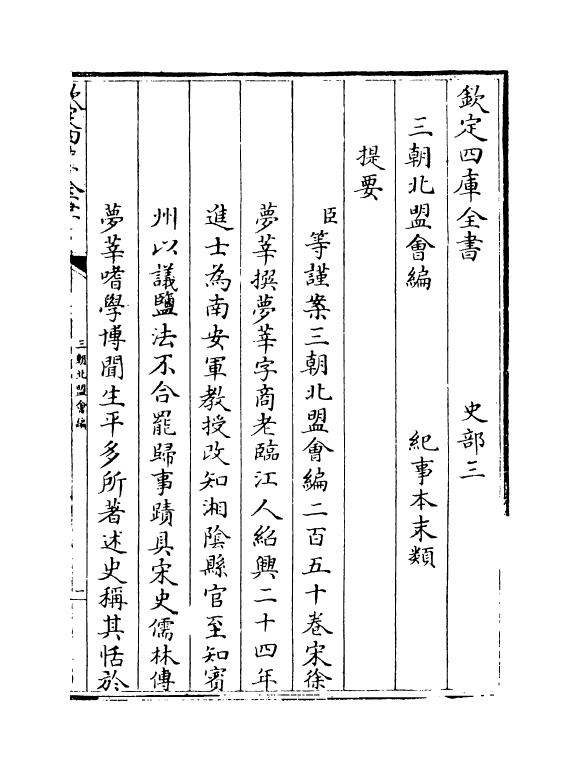 欽定四庫全書　史部三
三朝北盟會編　紀事本末類
提要
臣等謹案三朝北盟會編二百五十卷宋徐
夢莘撰夢莘字商老臨江人紹興二十四年
進士為南安軍教授改知湘陰縣官至知賓
州以議鹽法不合罷歸事蹟具宋史儒林傳
夢莘嗜學博聞生平多所著述史稱其恬於
欽定四庫全書
三朝北盟會編
一